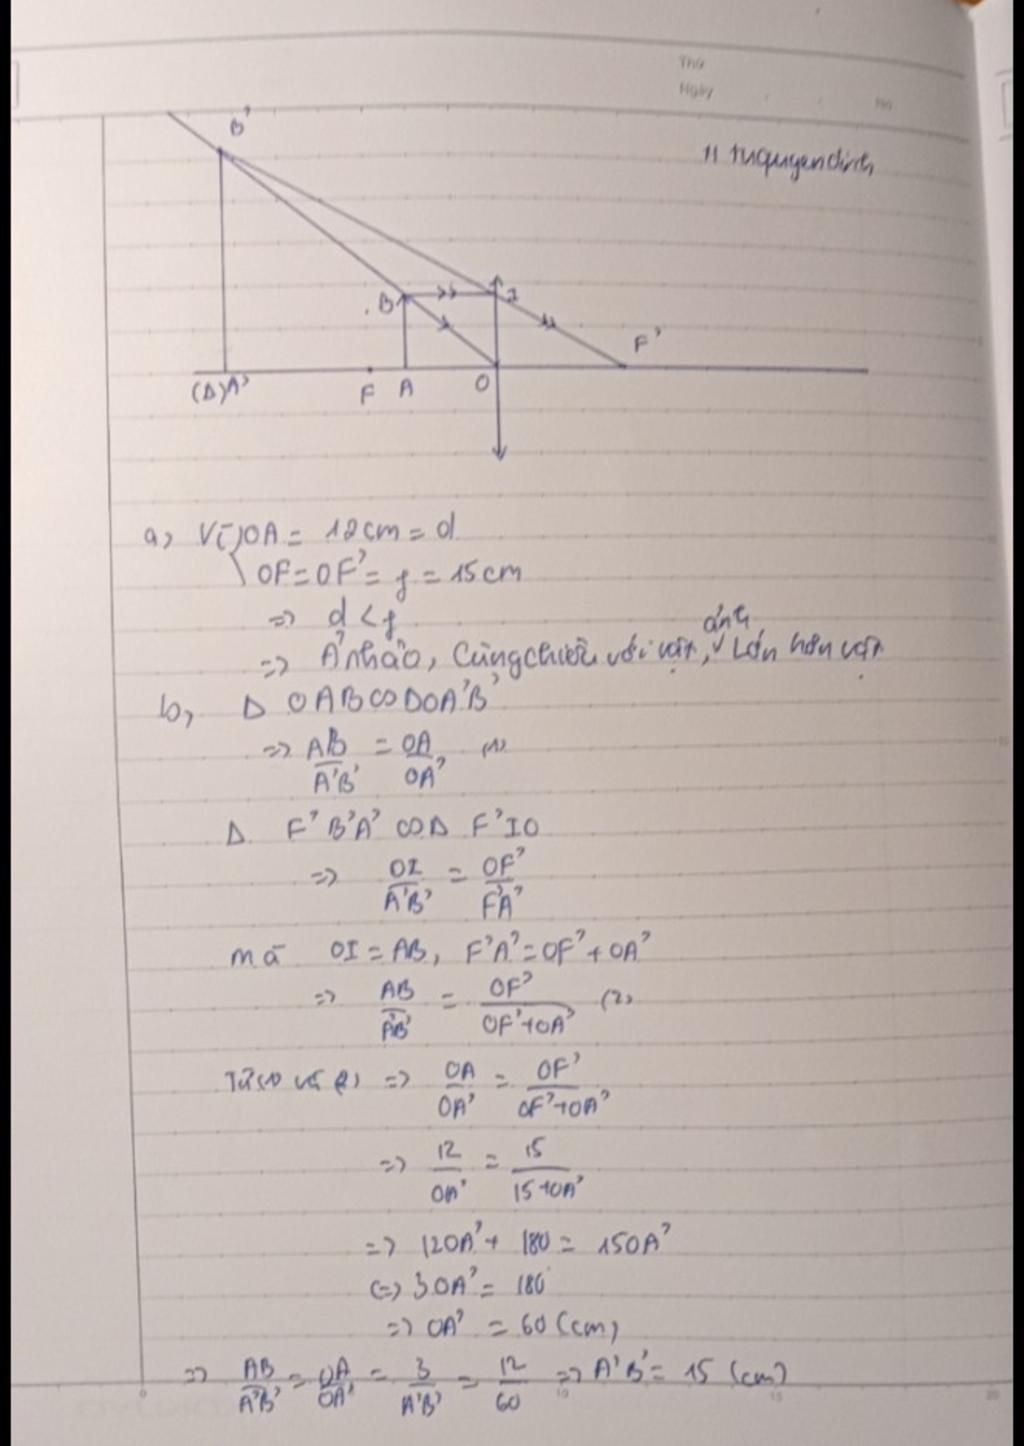 Thứ
Ngày
No
B'
B
I
F'
(Δ)A'
F
A
O
a, Vì OA = 12cm = d
OF = OF' = f = 15cm
=> d < f
ảnh
=> Ảnh ảo, Cùng chiều với vật, Lớn hơn vật
b, Δ OAB ∽ Δ OA'B'
=> AB/A'B' = OA/OA' (1)
Δ F'B'A' ∽ Δ F'IO
=> OI/A'B' = OF'/F'A'
mà OI = AB, F'A' = OF' + OA'
=> AB/A'B' = OF'/OF'+OA' (2)
Từ (1) và (2) => OA/OA' = OF'/OF'+OA'
=> 12/OA' = 15/15+OA'
=> 12OA' + 180 = 15OA'
<=> 3OA' = 180
=> OA' = 60 (cm)
=> AB/A'B' = OA/OA' = 3/A'B' = 12/60 => A'B' = 15 (cm)